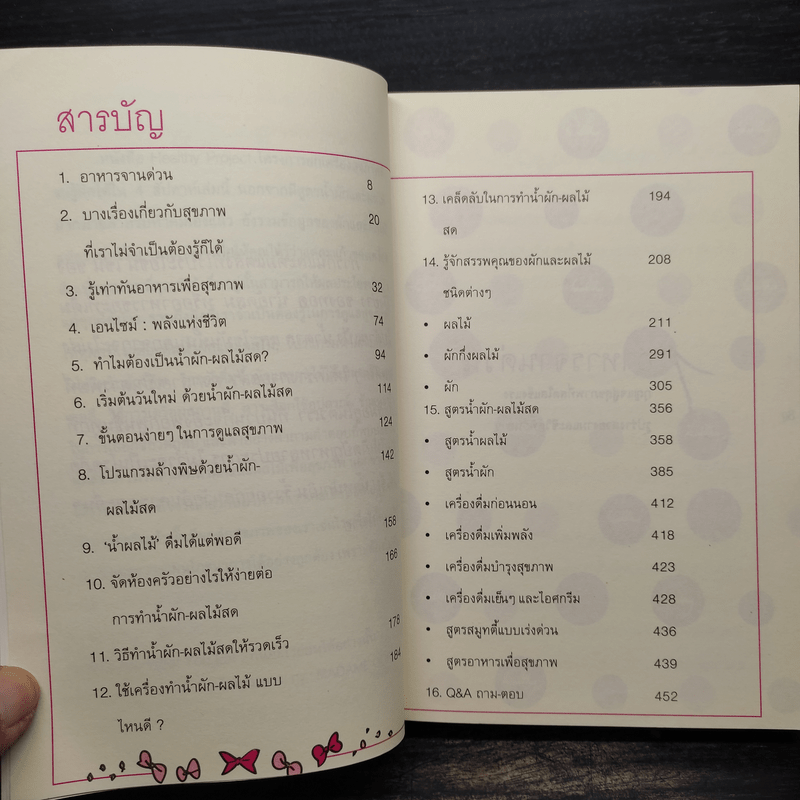 สารบัญ
1. อาหารจานด่วน 8
2. บางเรื่องเกี่ยวกับสุขภาพ 20
ที่เราไม่จำเป็นต้องรู้ก็ได้
3. รู้เท่าทันอาหารเพื่อสุขภาพ 32
4. เอนไซม์ : พลังแห่งชีวิต 74
5. ทำไมต้องเป็นน้ำผัก-ผลไม้สด? 94
6. เริ่มต้นวันใหม่ ด้วยน้ำผัก-ผลไม้สด 114
7. ขั้นตอนง่ายๆ ในการดูแลสุขภาพ 124
8. โปรแกรมล้างพิษด้วยน้ำผัก- 142
ผลไม้สด
9. ‘น้ำผลไม้’ ดื่มได้แต่พอดี 158
10. จัดห้องครัวอย่างไรให้ง่ายต่อ 166
การทำน้ำผัก-ผลไม้สด
11. วิธีทำน้ำผัก-ผลไม้สดให้รวดเร็ว 178
12. ใช้เครื่องทำน้ำผัก-ผลไม้ แบบ 184
ไหนดี ?
13. เคล็ดลับในการทำน้ำผัก-ผลไม้ 194
สด
14. รู้จักสรรพคุณของผักและผลไม้ 208
ชนิดต่างๆ
• ผลไม้ 211
• ผักกึ่งผลไม้ 291
• ผัก 305
15. สูตรน้ำผัก-ผลไม้สด 356
• สูตรน้ำผลไม้ 358
• สูตรน้ำผัก 385
• เครื่องดื่มก่อนนอน 412
• เครื่องดื่มเพิ่มพลัง 418
• เครื่องดื่มบำรุงสุขภาพ 423
• เครื่องดื่มเย็นๆ และไอศกรีม 428
• สูตรสมูทตี้แบบเร่งด่วน 436
• สูตรอาหารเพื่อสุขภาพ 439
16. Q&A ถาม-ตอบ 452